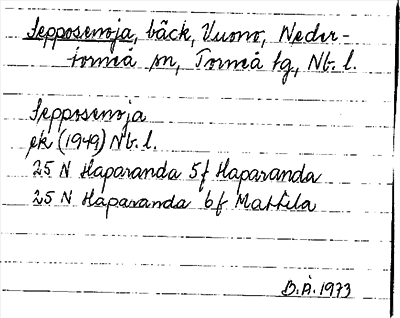 Sepposenoja, bäck, Vuono, Neder-
torneå sn, Torneå tg, Nb. l.
Sepposenoja
ek (1949) Nb. l.
25 N Haparanda 5f Haparanda
25 N Haparanda 6f Mattila
B.Å. 1973